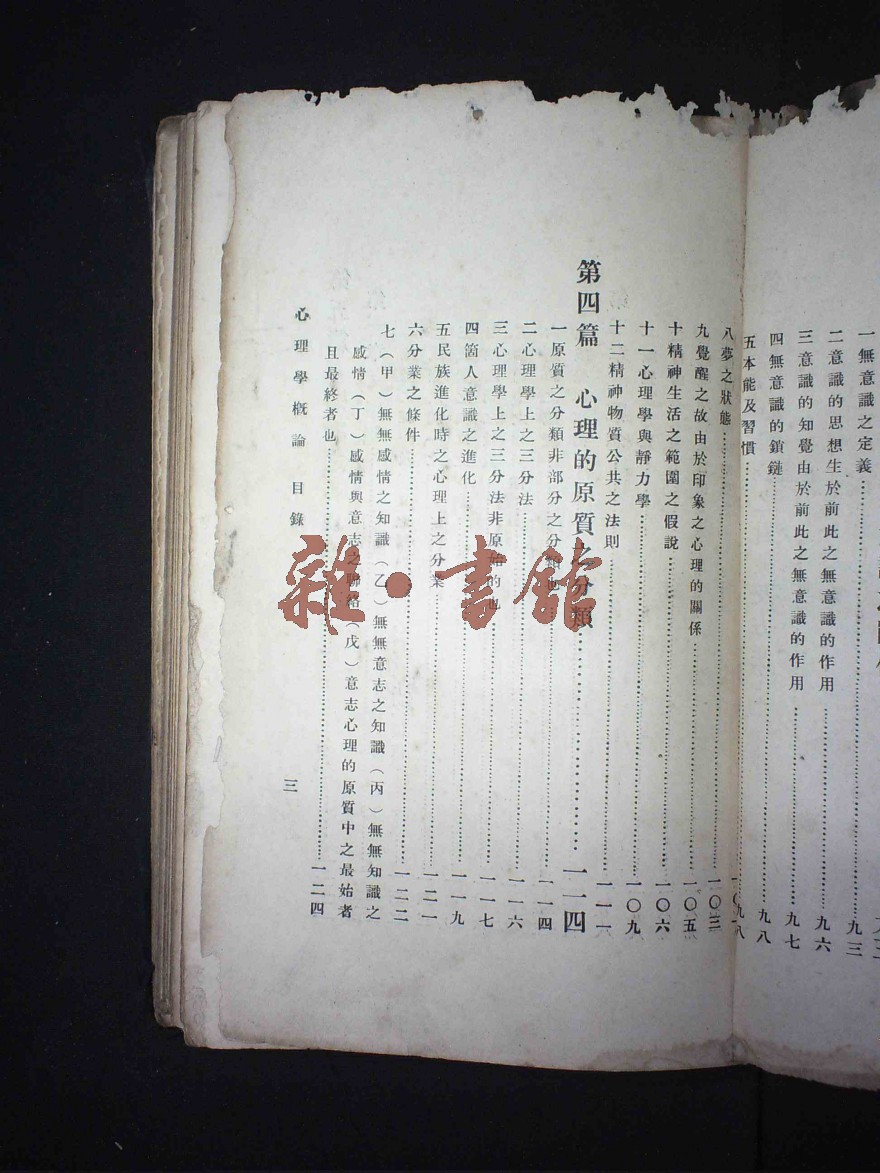 一無意識之定義⋯⋯九三
二意識的思想生於前此之無意識的作用⋯⋯九六
三意識的知覺由於前此之無意識的作用⋯⋯九七
四無意識的鎖鏈⋯⋯九八
五本能及習慣⋯⋯九八
八夢之狀態⋯⋯一〇三
九覺醒之故由於印象之心理的關係⋯⋯一〇五
十精神生活之範圍之假說⋯⋯一〇六
十一心理學與靜力學⋯⋯一〇九
十二精神物質公共之法則⋯⋯一一一
第四篇 心理的原質之分類⋯⋯一一四
一原質之分類非部分之分類也⋯⋯一一四
二心理學上之三分法⋯⋯一一六
三心理學上之三分法非原始的也⋯⋯一一七
四箇人意識之進化⋯⋯一一九
五民族進化時之心理上之分業⋯⋯一二一
六分業之條件⋯⋯一二二
七(甲)無無感情之知識(乙)無無意志之知識(丙)無無知識之
感情(丁)感情與意志之聯絡(戊)意志心理的原質中之最始者
且最終者也⋯⋯一二四
心理學概論 目錄 三
雜·書館